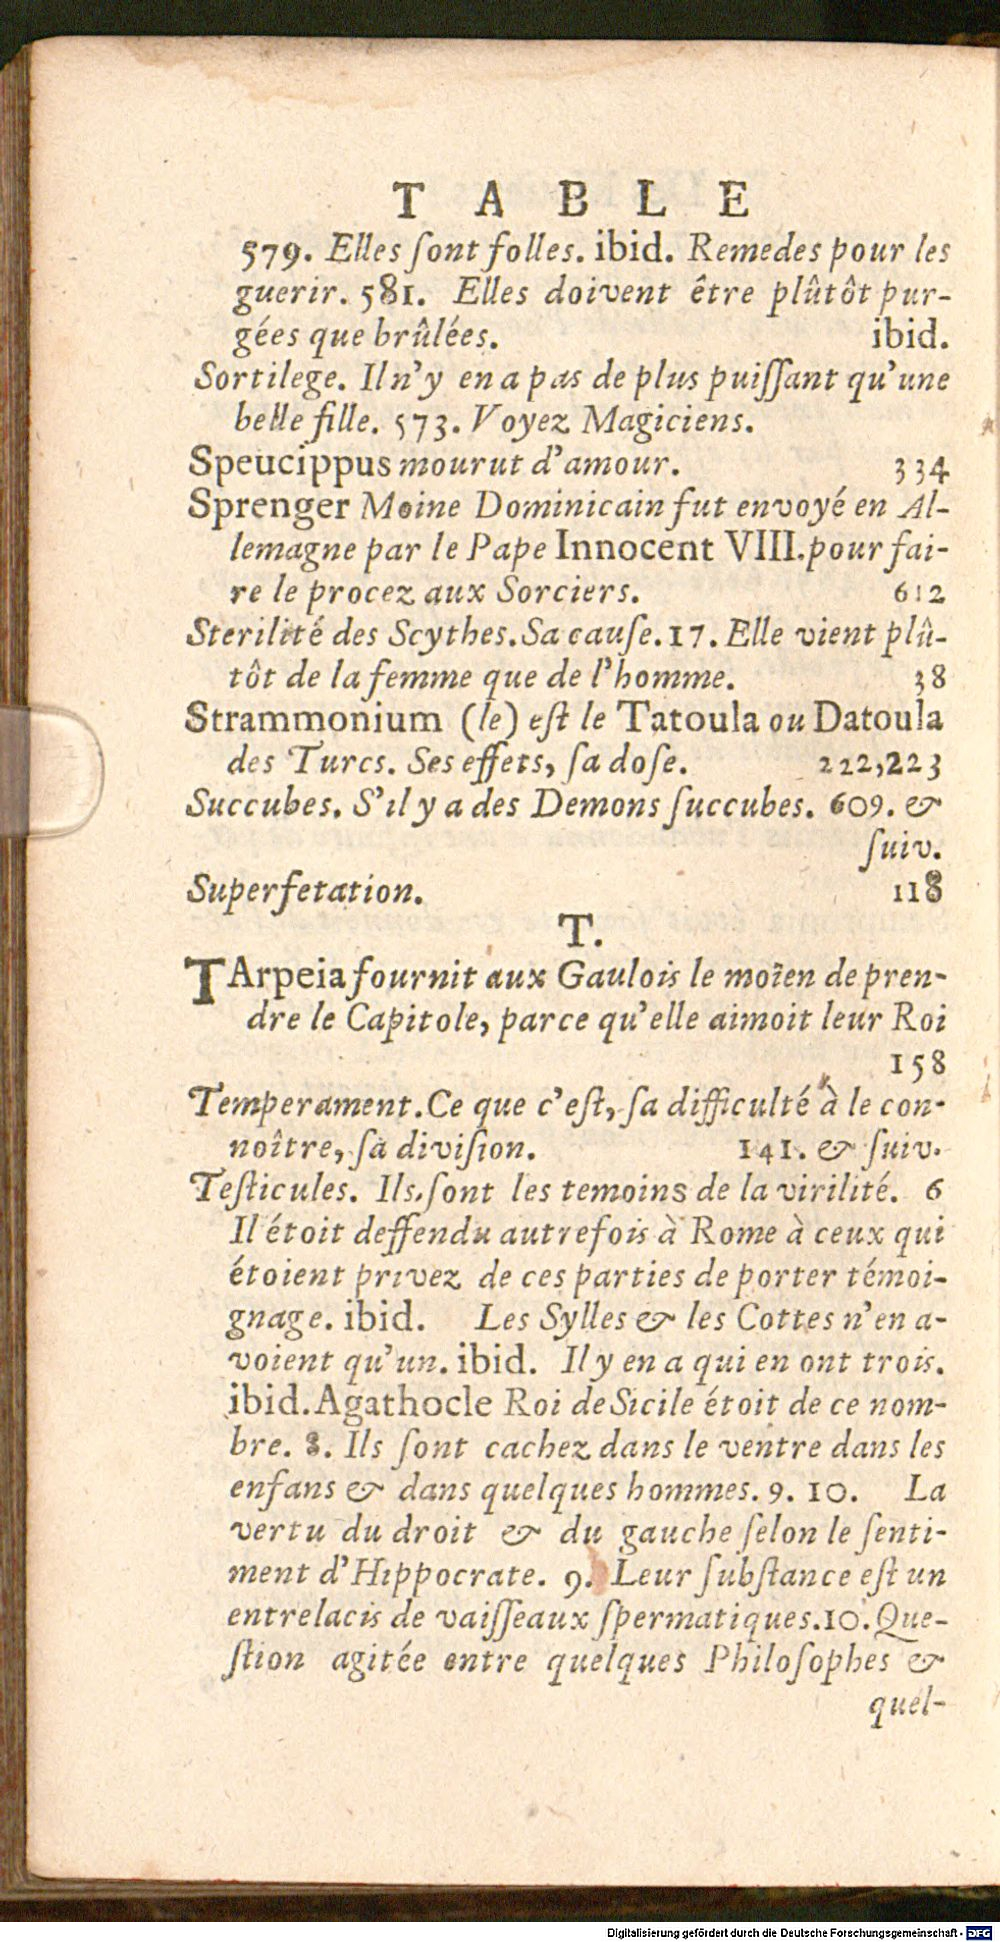 TABLE
579. Elles ſont folles. ibid. Remedes pour les
guerir. 581. Elles doivent être plûtôt pur-
gées que brûlées. ibid.
Sortilege. Il n'y en a pas de plus puiſſant qu'une
belle fille. 573. Voyez Magiciens.
Speucippus mourut d'amour. 334
Sprenger Moine Dominicain fut envoyé en Al-
lemagne par le Pape Innocent VIII. pour fai-
re le procez aux Sorciers. 612
Sterilité des Scythes. Sa cauſe. 17. Elle vient plû-
tôt de la femme que de l'homme. 38
Strammonium (le) eſt le Tatoula ou Datoula
des Turcs. Ses effets, ſa doſe. 222,223
Succubes. S'il y a des Demons ſuccubes. 609. &
ſuiv.
Superfetation. 118
T.
TArpeia fournit aux Gaulois le moïen de pren-
dre le Capitole, parce qu'elle aimoit leur Roi
158
Temperament. Ce que c'eſt, ſa difficulté à le con-
noître, ſa diviſion. 141. & ſuiv.
Teſticules. Ils ſont les temoins de la virilité. 6
Il étoit deffendu autrefois à Rome à ceux qui
étoient privez de ces parties de porter témoi-
gnage. ibid. Les Sylles & les Cottes n'en a-
voient qu'un. ibid. Il y en a qui en ont trois.
ibid. Agathocle Roi de Sicile étoit de ce nom-
bre. 8. Ils ſont cachez dans le ventre dans les
enfans & dans quelques hommes. 9. 10. La
vertu du droit & du gauche ſelon le ſenti-
ment d'Hippocrate. 9. Leur ſubſtance eſt un
entrelacis de vaiſſeaux ſpermatiques. 10. Que-
ſtion agitée entre quelques Philoſophes &
quel-
Digitalisierung gefördert durch die Deutsche Forschungsgemeinschaft - DFG